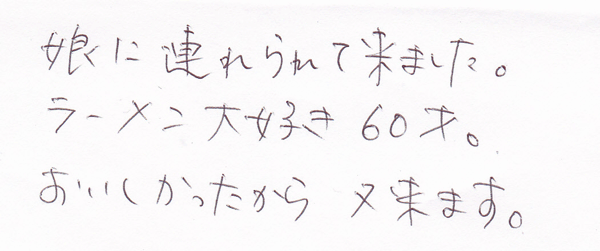 娘に連れられて来ました。
ラーメン大好き60才。
おいしかったから又来ます。